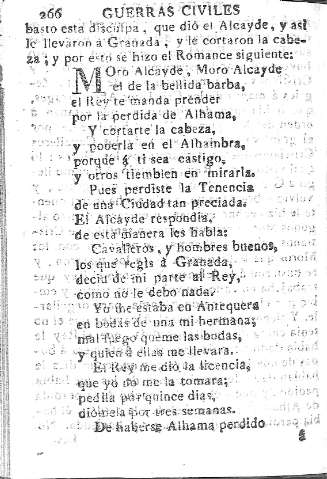 266 GUERRAS CIVILES
basto esta disculpa, que dió el Alcayde, y asi
le llevaron á Granada, y le cortaron la cabe-
za; y por esto se hizo el Romance siguiente:
MOro Alcayde, Moro Alcayde
el de la bellida barba,
el Rey te manda prender
por la perdida de Alhama,
Y cortarte la cabeza,
y ponerla en el Alhambra,
porque á ti sea castigo,
y otros tiemblen en mirarla.
Pues perdiste la Tenencia
de una Ciudad tan preciada.
El Alcayde respondia,
de esta manera les habla:
Cavalleros, y hombres buenos,
los que regis á Granada,
decid de mi parte al Rey,
como no le debo nada.
Yo me estaba en Antequera
en bodas de una mi hermana;
mal fuego queme las bodas,
y quien á ellas me llevara.
El Rey me dió la licencia,
que yo no me la tomara;
pedila por quince dias,
diómela por tres semanas.
De haberse Alhama perdido
á